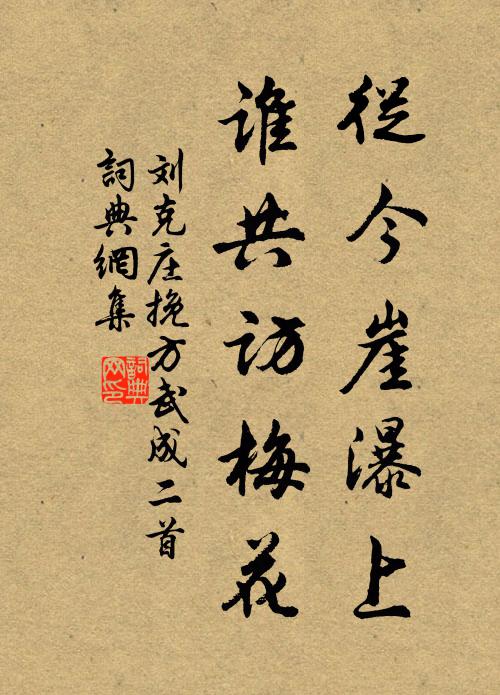 從今崖瀑上
誰共访梅花
刘克庄挽方武成二首
詞典網集
詞典
网印